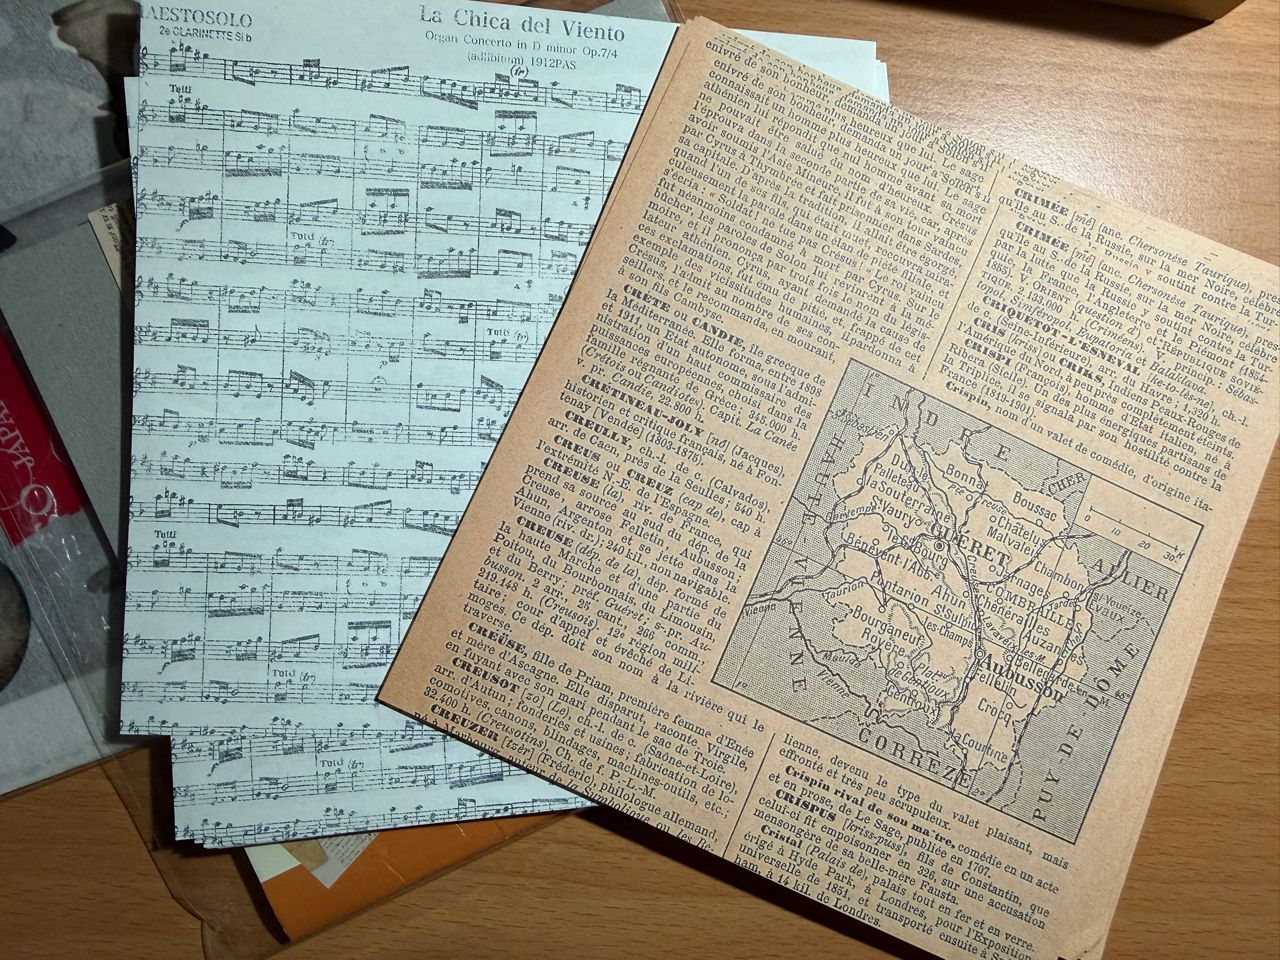 MAESTOSOLO
2e CLARINETTE Si b
La Chica del Viento
Organ Concerto in D minor Op.7/4
(adlibitum) 1912PAS
(tr)
Tutti
Tutti (tr)
Tutti
Tutti
Tutti (tr)
Tutti (tr)
JAPAN
enivré de son bonheur, demanda un jour à Solon s'il
connaissait un homme plus heureux que lui. Le sage
athénien lui répondit que nul homme avant sa mort
ne pouvait être salué du nom d'heureux. Crésus
l'éprouva dans la seconde partie de sa vie, car, après
avoir soumis l'Asie Mineure, il fut à son tour vaincu
par Cyrus à Thymbrée et fait prisonnier dans Sardes,
sa capitale. D'après la tradition, il allait être égorgé
quand un de ses fils, qui était muet, recouvra mira-
culeusement la parole dans un élan de piété filiale, et
s'écria : « Soldat! ne tue pas Crésus! » Le roi vaincu
fut néanmoins condamné à mourir par Cyrus. Sur le
bûcher, les paroles de Solon lui revinrent en mé-
moire, et il prononça par trois fois le nom du légis-
lateur athénien. Cyrus, ayant demandé la cause de
ces exclamations, fut ému de pitié, et, frappé de cet
exemple des vicissitudes humaines, il pardonna à
Crésus, l'admit au nombre de ses con-
sellers et le recommanda, en mourant,
à son fils Cambyse.
CRÈTE ou CANDIE, île grecque de
la Méditerranée. Elle forma, entre 1898
et 1914, un État autonome, sous l'admi-
nistration d'un haut commissaire des
puissances européennes, choisi dans la
famille régnante de Grèce; 345.000 h.
(Crétois ou Candiotes). Capit. La Canée
v. pr. Candie, 22.800 h.
CRÉTINEAU-JOLY [no] (Jacques),
historien et critique français, né à Fon-
tenay [Vendée] (1803-1875).
CREULLY, ch.-l. de c. (Calvados),
arr. de Caen, près de la Seulles; 540 h.
CREUS ou CREUZ (cap de), cap à
l'extrémité N.-E. de l'Espagne.
CREUSE (la), riv. de France, qui
prend sa source au sud du dép. de la
Creuse, arrose Felletin, Aubusson;
Ahun, Argenton et se jette dans la
Vienne (riv. dr.); 240 kil., non navigable.
CREUSE (dép. de la), dép. formé de
la haute Marche et d'une partie du
Poitou, du Bourbonnais, du Limousin,
et du Berry; préf. Guéret, s.-pr. Au-
busson. 2 arr., 25 cant., 266 comm.,
219.148 h. (Creusois). 12e région mili-
taire; cour d'appel et évêché de Li-
moges. Ce dép. doit son nom à la rivière qui le
traverse.
CRÉUSE, fille de Priam, première femme d'Énée
et mère d'Ascagne. Elle disparut, raconte Virgile,
en fuyant avec son mari pendant le sac de Troie.
CREUSOT [zo] (Le), ch.-l. de c. (Saône-et-Loire),
arr. d'Autun; fonderies et usines: fabrication de lo-
comotives, canons, blindages, machines-outils, etc.;
32.400 h. (Creusotins). Ch. de f. P.-L.-M.
CREUZER [tzèr] (Frédéric), philologue allemand,
né à Marbourg, auteur de la Symbolique ou les Re-
CRIMÉE [mé] (anc. Chersonèse Taurique), pres-
qu'île au S. de la Russie, sur la mer Noire, célèbre
CRIMÉE [mé] (anc. Chersonèse Taurique), pres-
qu'île au S. de la Russie, sur la mer Noire, célèbre
par la lutte que la Russie y soutint contre la Tur-
quie, la France, l'Angleterre et le Piémont en 1854-
CRIQUETOT-L'ESNEVAL [ke-to-lè-ne], ch.-l.
de c. (Seine-Inférieure), arr. du Havre; 1.320 h.
CRIS [kriss] ou CRIKS, Indiens Peaux-Rouges de
l'Amérique du Nord, à peu près complètement éteints.
CRISPI (François), homme d'État italien, né à
Ribera (Sicile), un des plus énergiques partisans de
la Triplice. Il se signala par son hostilité contre la
France (1819-1901).
Crispin, nom d'un valet de comédie, d'origine ita-
INDRE
CHER
HAUTE
VIENNE
ALLIER
PUY-DE-DÔME
CORRÈZE
0 10 20 30 K
Dun
Bonnat
Boussac
la Souterraine
Châtelus
Malvaleix
St Vaury
GUÉRET
Jarnages
Chambon
Bénévent
l'Abb.
Ahun
COMBRAILLE
Évaux
Pontarion
Chénérailles
Auzances
Bourganeuf
Royère
Bellegarde-en-M.
Aubusson
Felletin
Crocq
Gentioux
la Courtine
Vienne
lienne, devenu le type du valet plaisant, mais
effronté et très peu scrupuleux.
Crispin rival de son maître, comédie en un acte
et en prose, de Le Sage, publiée en 1707.
CRISPUS [kriss-puss], fils de Constantin, que
celui-ci fit empoisonner en 326, sur une accusation
mensongère de sa belle-mère Fausta.
Cristal (Palais de), palais tout en fer et en verre,
érigé à Hyde Park, à Londres, pour l'Exposition
universelle de 1851, et transporté ensuite à
ham, à 14 kil. de Londres.